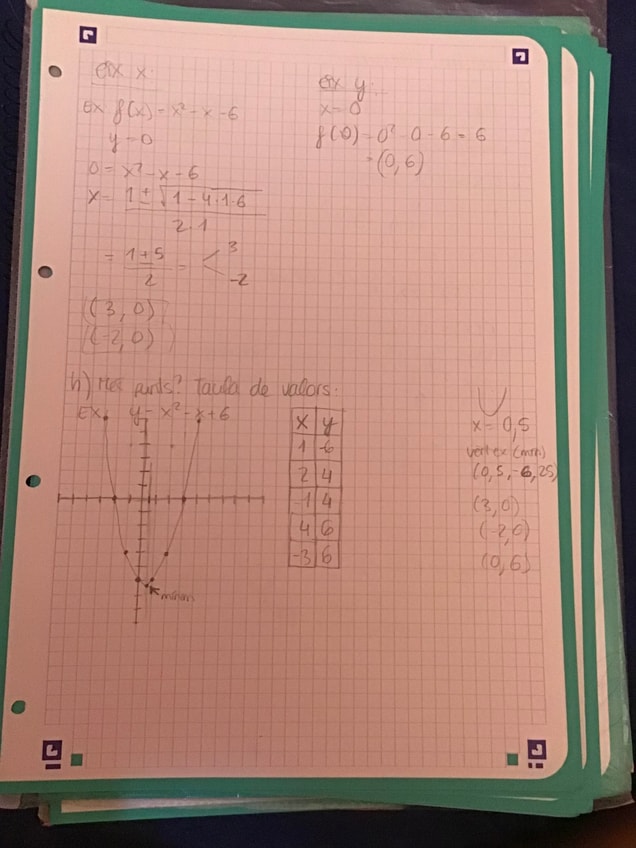 eix x:
Ex f(x) = x² - x - 6
y = 0
0 = x² - x - 6
x = 1 ± √1 - 4·1·6
2·1
= 1 ± 5 = < 3
2 -2
(3, 0)
(-2, 0)
eix y:
x = 0
f(0) = 0² - 0 - 6 = 6
= (0, 6)
h) Més punts? Taula de valors.
Ex y = x² - x + 6
x y
1 -6
2 4
-1 4
4 6
-3 6
mínim
x = 0,5
vertex (min)
(0,5, -6,25)
(3, 0)
(-2, 0)
(0, 6)